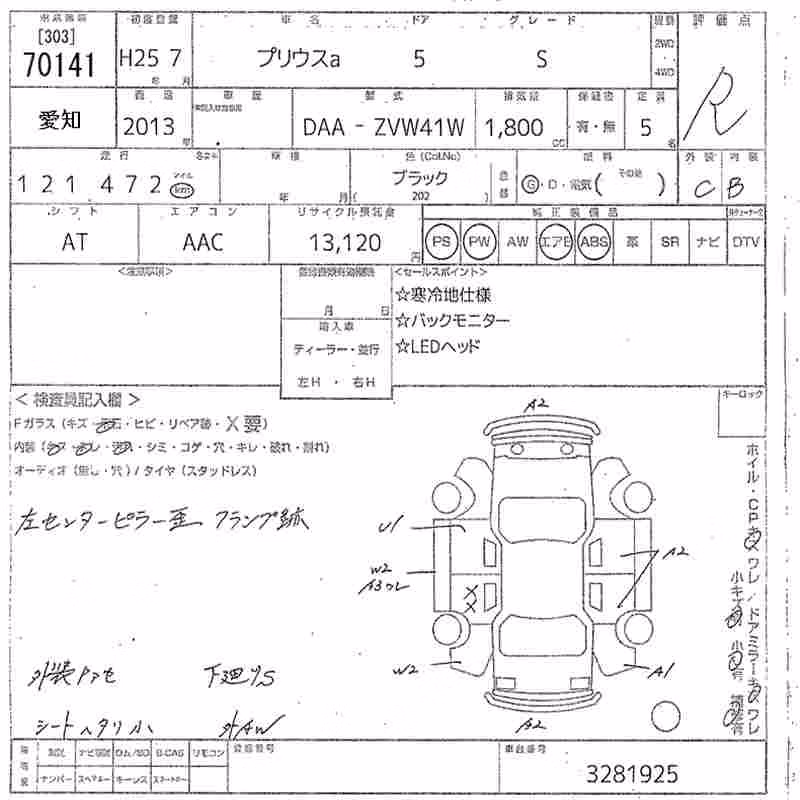 [303]
70141
初度登録
H25 7
年 月
車名 ドア グレード
プリウスa 5 S
2WD
4WD
評価点
R
愛知
2013
年
型式
DAA - ZVW41W
排気量
1,800
CC
有・無
定員
5
名
外装 内装
C B
走行
121 472
マイル
km
年 月
色 (Col.No)
ブラック
( 202 )
燃料
G・D・電気( その他 )
シフト
AT
エアコン
AAC
リサイクル預託金
13,120
円
純正装備品
PS PW AW エアB ABS 革 SR ナビ DTV
<注意事項>
月 日
輸入車
ディーラー・並行
左H ・ 右H
<セールスポイント>
☆寒冷地仕様
☆バックモニター
☆LEDヘッド
キーロック
< 検査員記入欄 >
Fガラス (キズ・・ヒビ・リペア跡・X要)
内装 (・・・シミ・コゲ・穴・キレ・破れ・割れ)
オーディオ (無し・穴) / タイヤ (スタッドレス)
左センターピラー歪 クランプ跡
A2
U1
A2
W2
A3ワレ
XX
W2
A1
A2
ホイル・CPキズ ワレ / ドアミラーキズ ワレ
下廻りS
シートヘタリ小
外AW
ナンバー スペアキー キーレス
リモコン
登録番号
車台番号
3281925